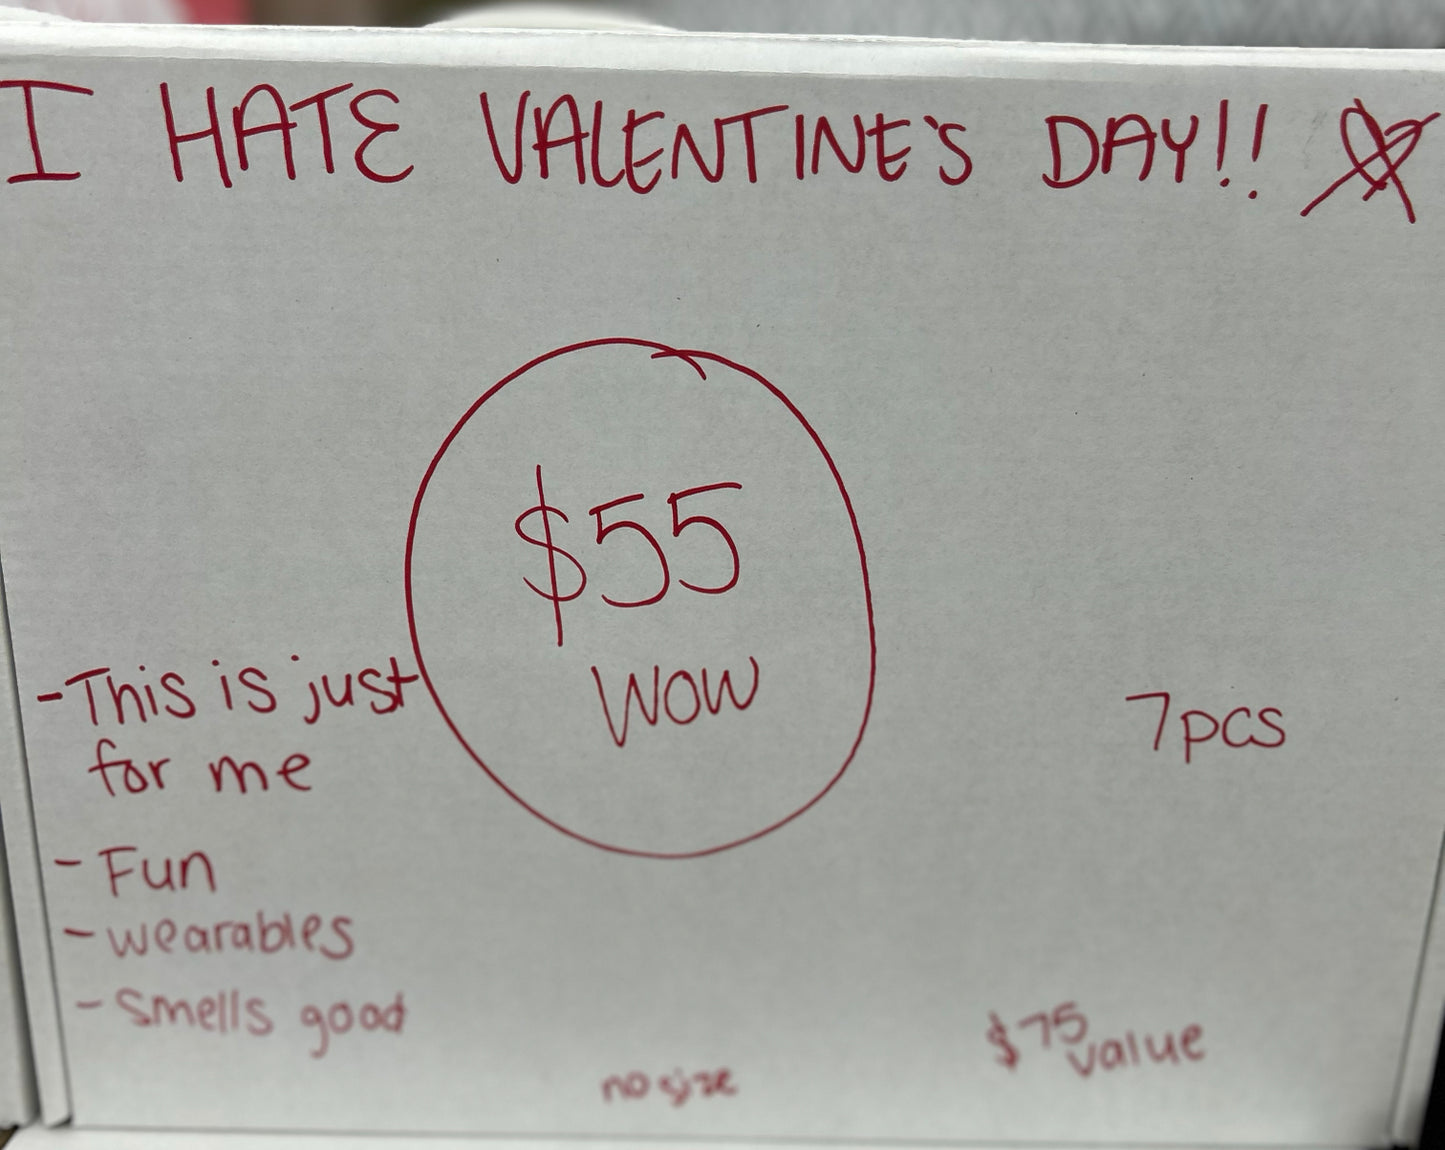 I HATE VALENTINE'S DAY!!
$55
WOW
-This is just
for me
- Fun
- wearables
- Smells good
7pcs
$75 value
no size